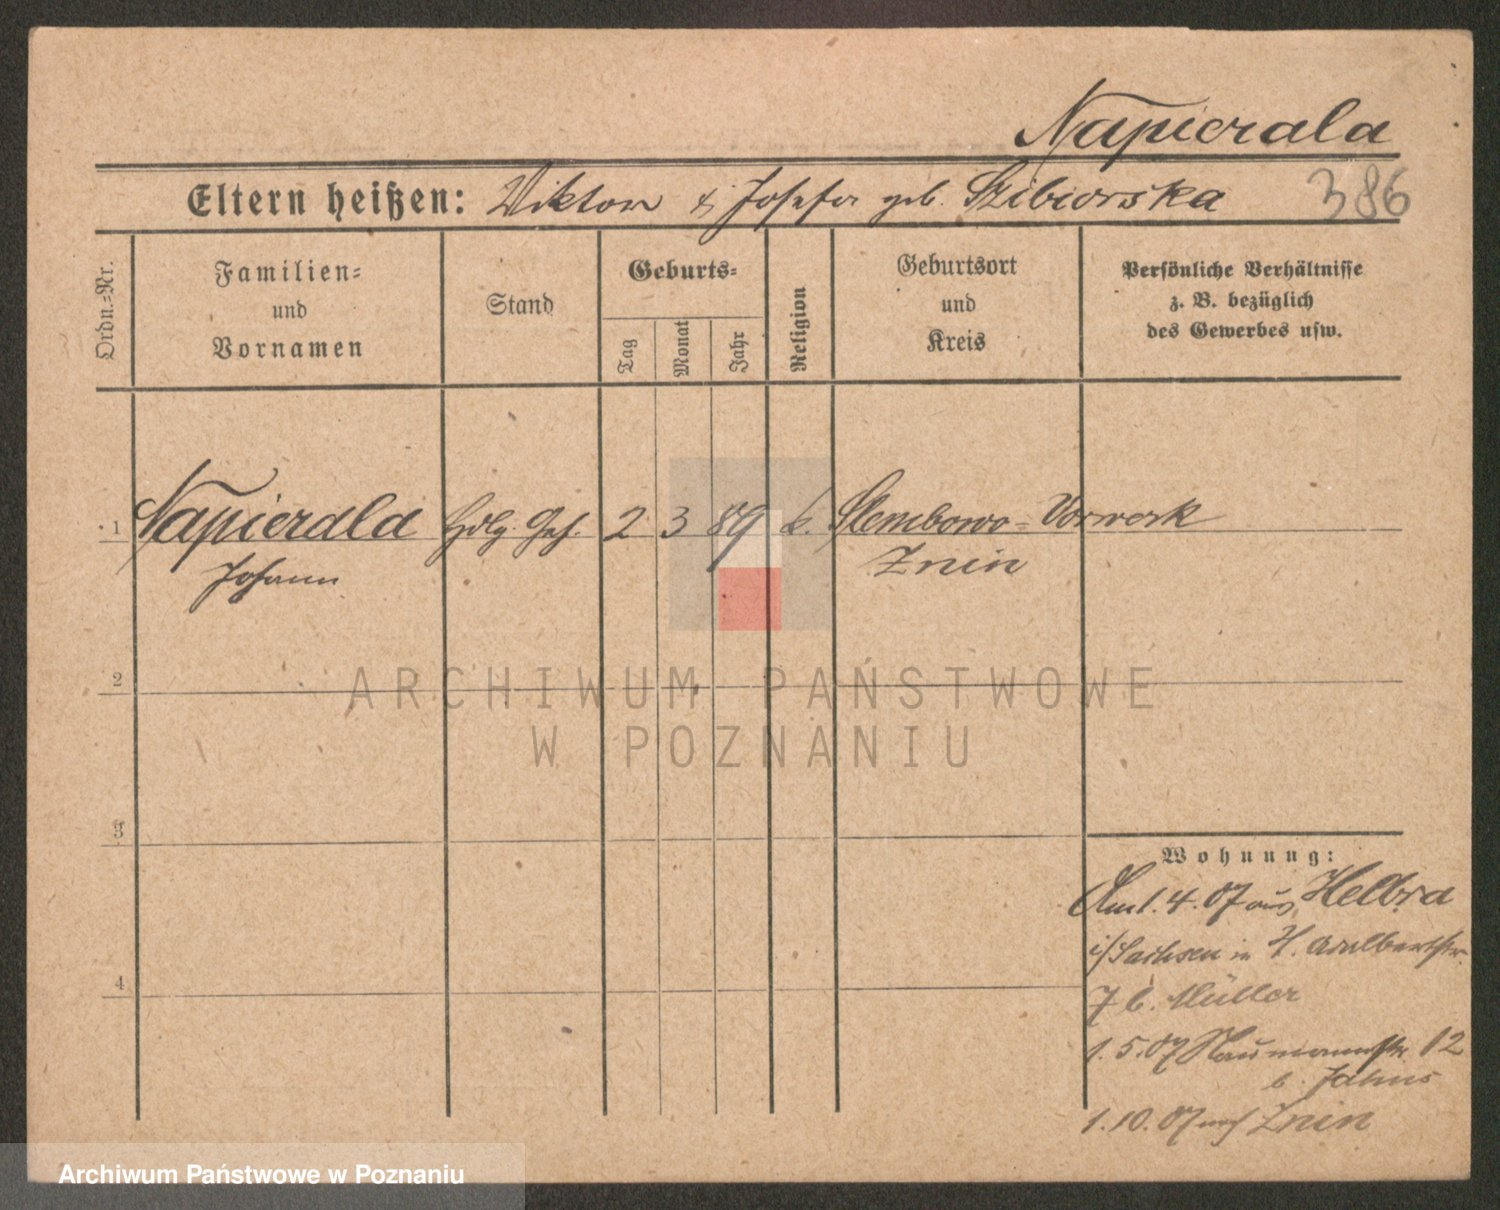 Napierala
Eltern heißen: Viktor & Josefa geb. Szibiorska 386
Ordn.=Nr.
Familien=
und
Vornamen
Stand
Geburts=
Tag
Monat
Jahr
Religion
Geburtsort
und
Kreis
Persönliche Verhältnisse
z. B. bezüglich
des Gewerbes usw.
1 Napierala Hdlg. Geh. 2 3 89 k. Slembowo=Vorwerk
Johann Znin
2
ARCHIWUM PAŃSTWOWE
W POZNANIU
3
Wohnung:
Am 1.4.07 aus Helbra
i/Sachsen in H. Adalbertstr.
7 b. Müller
4
1.5.07 Naumannstr. 12
b. Jahns
1.10.07 nach Znin
Archiwum Państwowe w Poznaniu